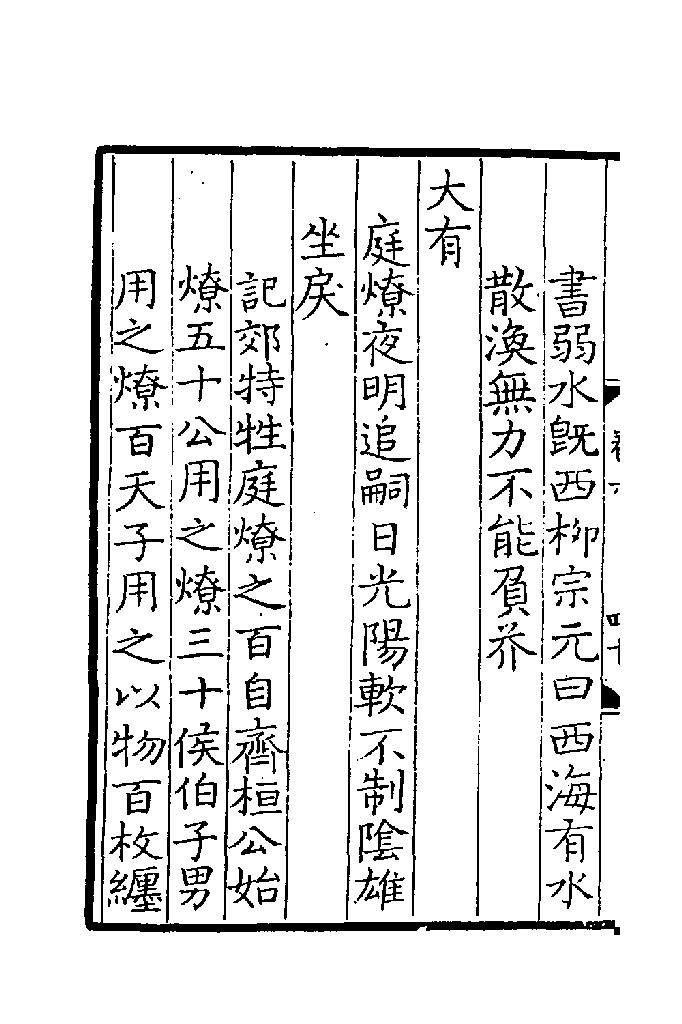 書弱水旣西柳宗元曰西海有水
散渙無力不能負芥
大有
庭燎夜明追嗣日光陽軟不制陰雄
坐戾
記郊特牲庭燎之百自齊桓公始
燎五十公用之燎三十侯伯子男
用之燎百天子用之以物百枚纏